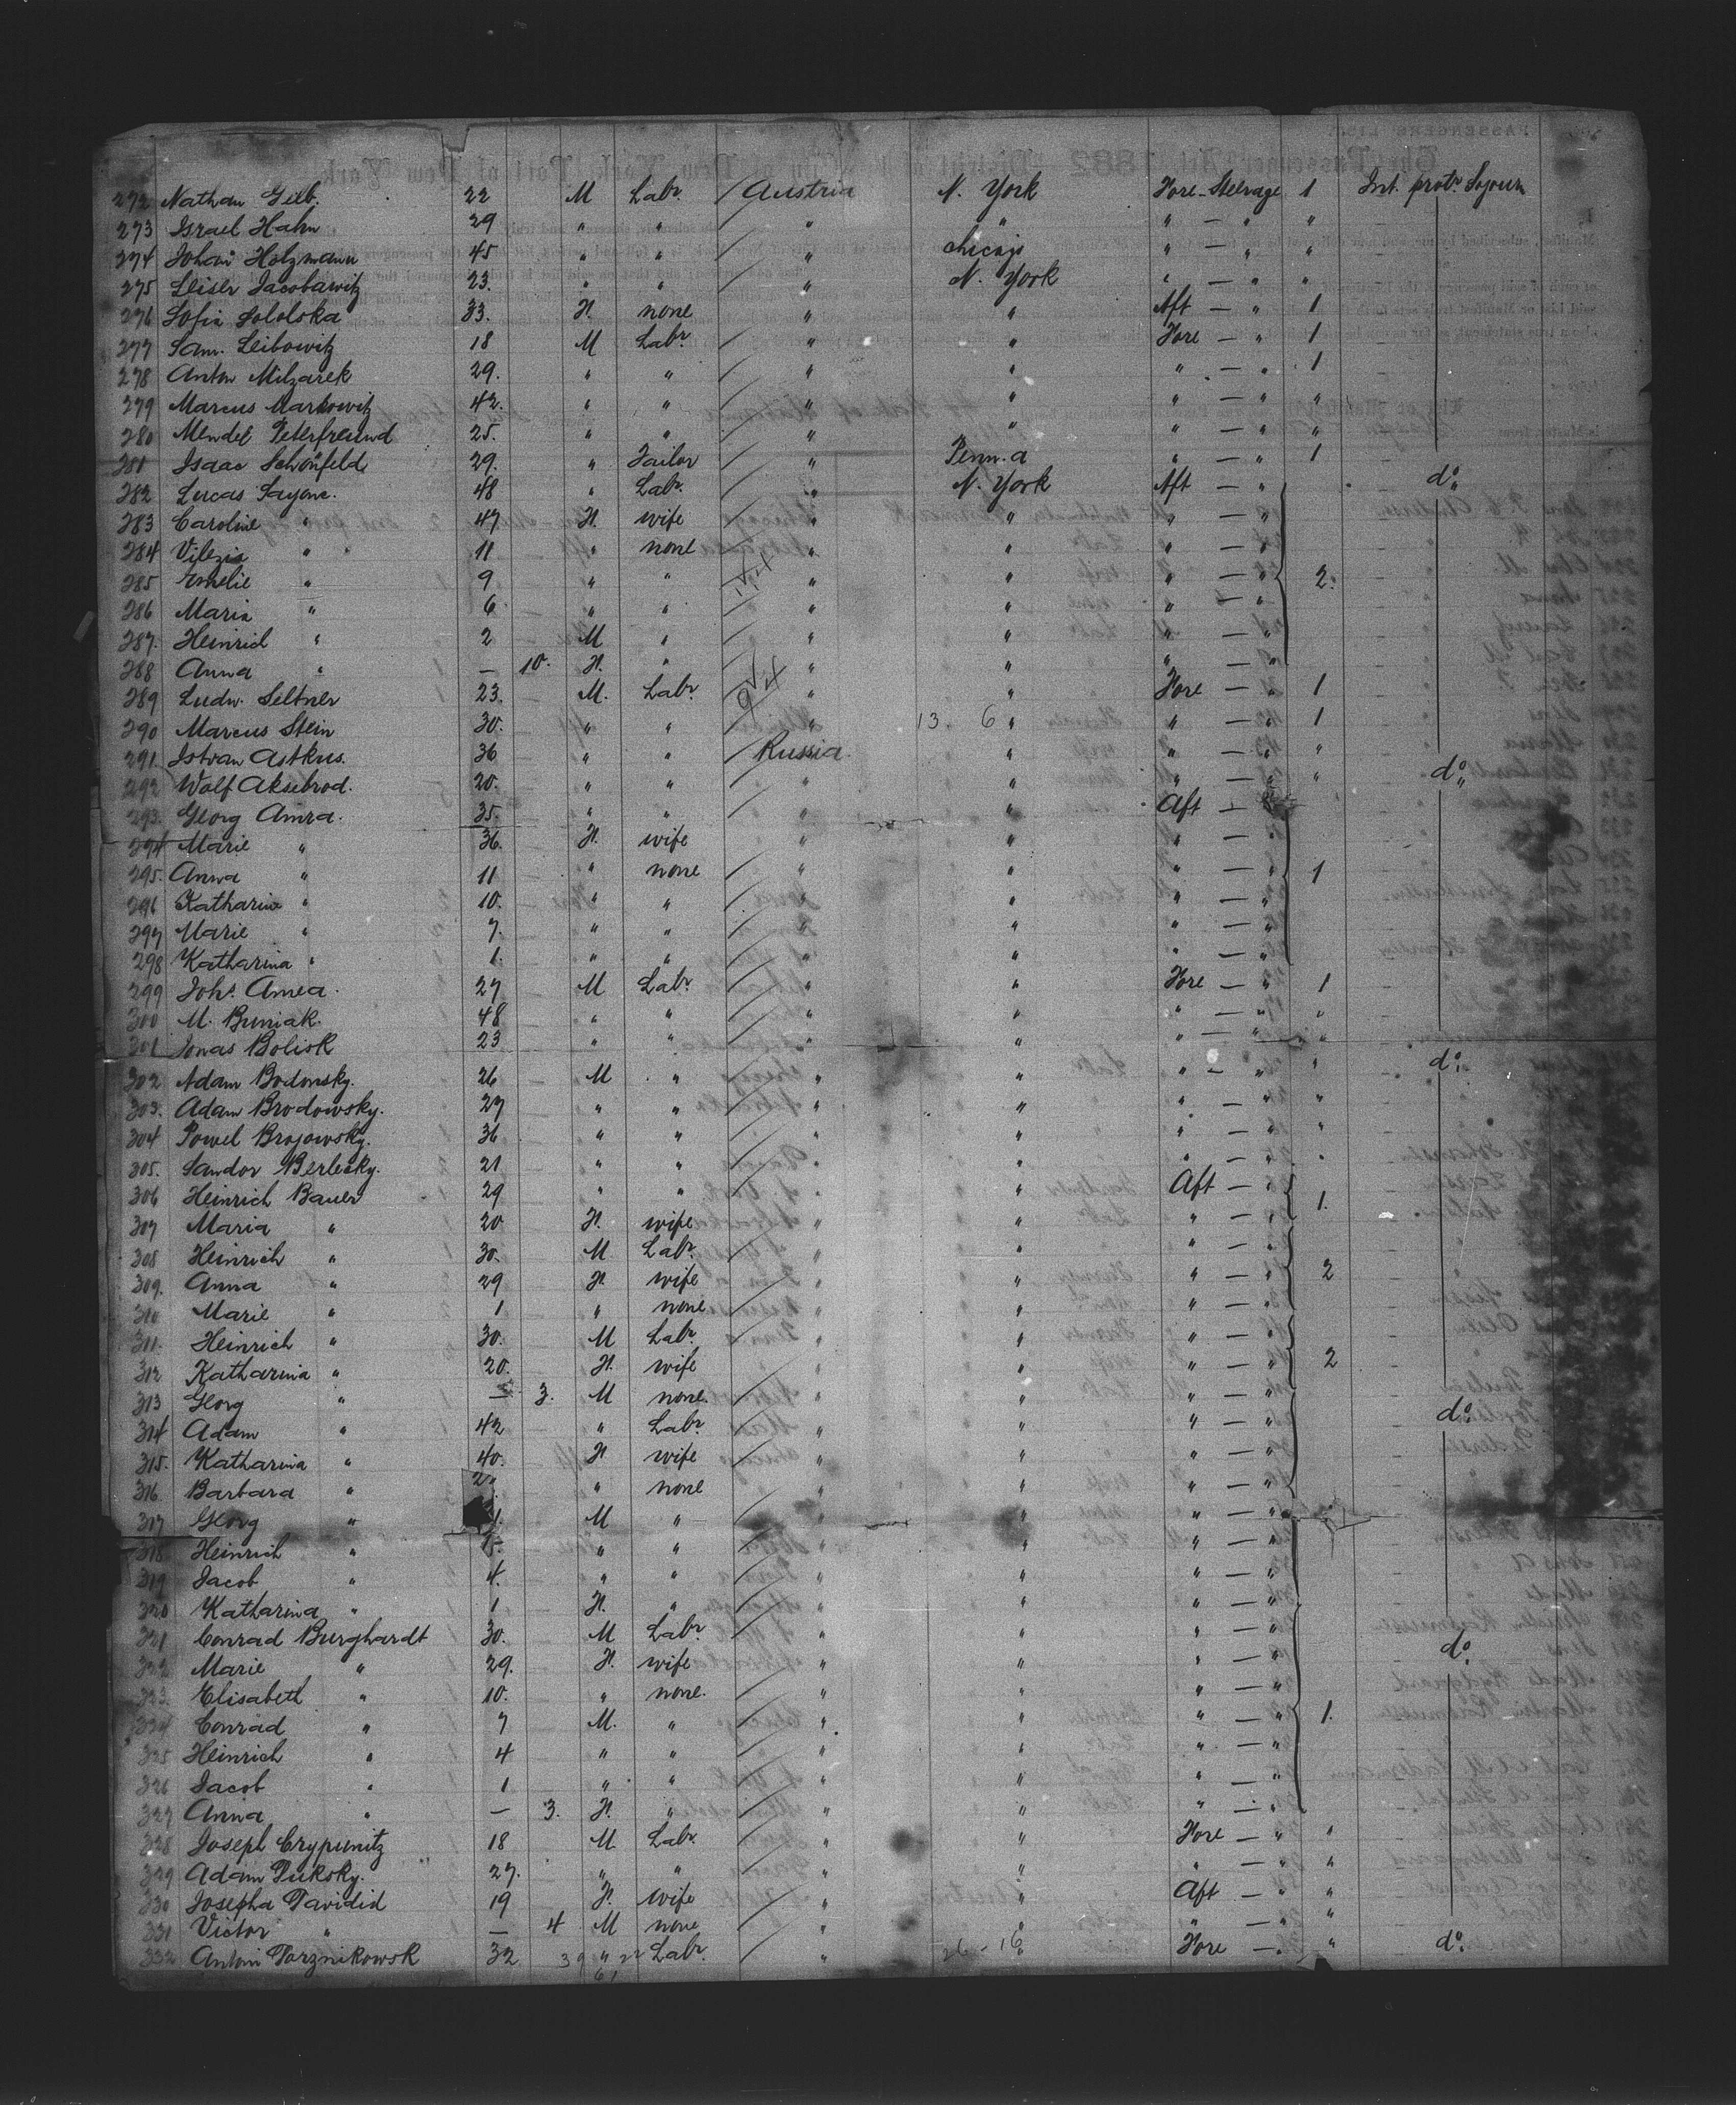 272 Nathan Gelb. 22 M Labr. / Austria N. York Fore - Steerage 1 Int. protr Sojourn
273 Israel Hahn 29 " " / " " " - " "
274 Johan Holzmann 45 " " / " Chicago " - " "
275 Leiser Jacobawitz 23. " " / " N. York " - " "
276 Sofia Sololska 33. F. none / " " Aft - " 1
277 Sam. Leibowitz 18 M Labr. / " " Fore - " 1
278 Anton Milzarek 29. " " / " " " - " 1
279 Marcus Markowitz 42. " " / " " " - " "
280 Mendel Peterfreund 25. " " / " " " - " "
281 Isaac Schönfeld 29. " Tailor / " Penn.a " - " 1
282 Lucas Sayonc. 48 " Labr. / " N. York Aft - " do.
283 Caroline " 47 F. wife / " " " - "
284 " 11 " none / " " " - "
285 Emelie " 9 " " / " " " - " 2.
286 Maria " 6. " " / " " " - "
287. Heinrich " 2 M " / " " " - "
288 Anna " — 10. F. " / " " " - "
289 Ludw. Seltner 23. M. Labr. / " " Fore - " 1
290 Marcus Stein 30. " " / " 13. 6 " " - " 1
291. Istvan Astkus. 36 " " / Russia " " - " "
292 Wolf Akselrod. 20. " " / " " " - " " do.
293. Georg Amra. 35. " " / " " Aft -
294 Marie " 36. F. wife / " " " - "
295. Anna " 11 " none / " " " - " 1
296 Katharine " 10. " " / " " " - "
297 Marie " 7. " " / " " " - "
298 Katharina " 1. " " / " " " - "
299 Johs. Amea. 27 M Labr. / " " Fore - " 1
300 M. Buniak. 48 " " / " " " - " "
301 Jonas Bolisk 23 " " / " " " - " "
302 Adam Bodonsky. 26 M " / " " " - " " do.
303. Adam Brodowsky. 27 " " / " " " - " "
304 Powel Brojowsky. 36 " " / " " " - " "
305. Sandor Berlecky. 21 " " / " " " - " "
306 Heinrich Bauer 29 " " / " " Aft - " 1.
307 Maria " 20 F. wife / " " " - "
308 Heinrich " 30. M Labr. / " " " - "
309. Anna " 29 F. wife / " " " - " 2
310 Marie " 1 " none / " " " - "
311. Heinrich " 30. M Labr. / " " " - "
312 Katharina " 20. F. wife / " " " - " 2
313 Georg " — 3. M none. / " " " - "
314 Adam " 42 " Labr. / " " " - " do.
315. Katharina " 40. F wife / " " " - "
316. Barbara " " none / " " " - "
317 Georg " M " / " " " - "
318 Heinrich " " " / " " " - "
319 Jacob " 4. " " / " " " - "
320 Katharina " 1 F. " / " " " - "
321 Conrad Burghardt 30. M Labr. / " " " - " do.
322 Marie " 29. F. wife / " " " - "
323. Elisabeth " 10. " none. / " " " - "
324 Conrad " 7 M. " / " " " - " 1.
325 Heinrich " 4 " " / " " " - "
326 Jacob " 1 " " / " " " - "
327 Anna " — 3. F. " / " " " - "
328 Joseph Crypunitz 18 M Labr. / " " Fore - " "
329 Adam Duksky. 27. " " / " " " - " "
330 Josepha Davidid 19 F. wife / " " Aft - " "
331 Victor " — 4 M none / " " " - " "
332 Antoni Dorznikowsk 32 39 " 22 Labr. / " 26 - 16 " Fore - " " do.
61